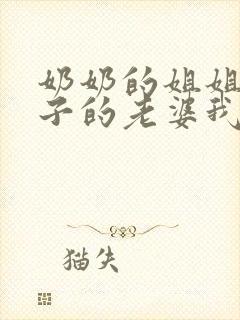 奶奶的姐姐
子的老婆我
猫失